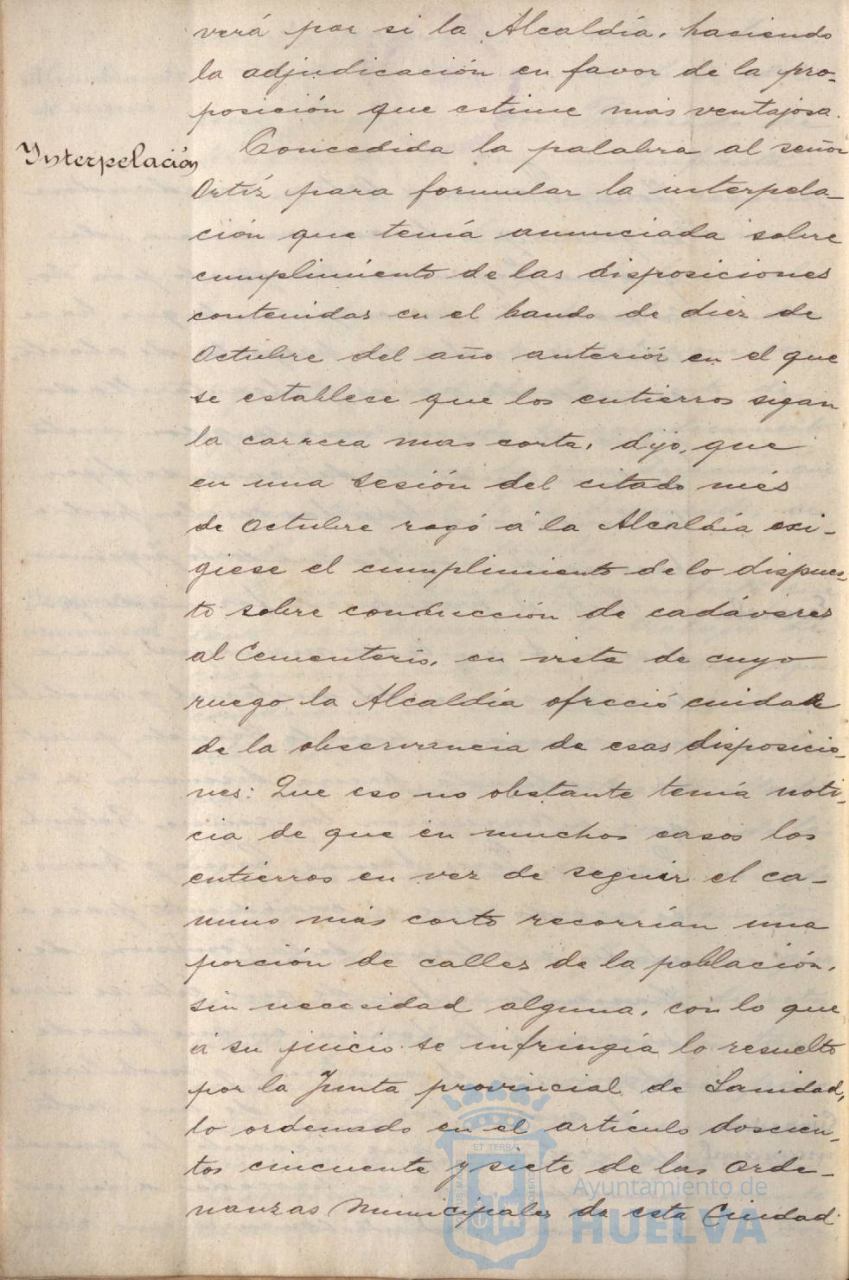 verá por si la Alcaldía, haciendo
la adjudicación en favor de la pro-
posición que estime mas ventajosa.
Interpelación
Concedida la palabra al señor
Ortíz para formular la interpela-
ción que tenía anunciada sobre
cumplimiento de las disposiciones
contenidas en el bando de diez de
Octubre del año anteriór en el que
se establese que los entierros sigan
la carrera mas corta, dijo, que
en una sesión del citado més
de Octubre rogó á la Alcaldía exi-
giese el cumplimiento de lo dispues-
to sobre conducción de cadáveres
al Cementerio, en vista de cuyo
ruego la Alcaldía ofreció cuidar
de la observancia de esas disposicio-
nes: Que eso no obstante tenía noti-
cia de que en muchos casos los
entierros en vez de seguir el ca-
mino más corto recorrían una
porción de calles de la población,
sin necesidad alguna, con lo que
á su juicio se infringía lo resuelto
por la Junta provincial de Sanidad,
lo ordenado en el artículo doscien-
tos cincuenta y siete de las Orde-
nanzas Municipales de esta Ciudad
Ayuntamiento de
HUELVA